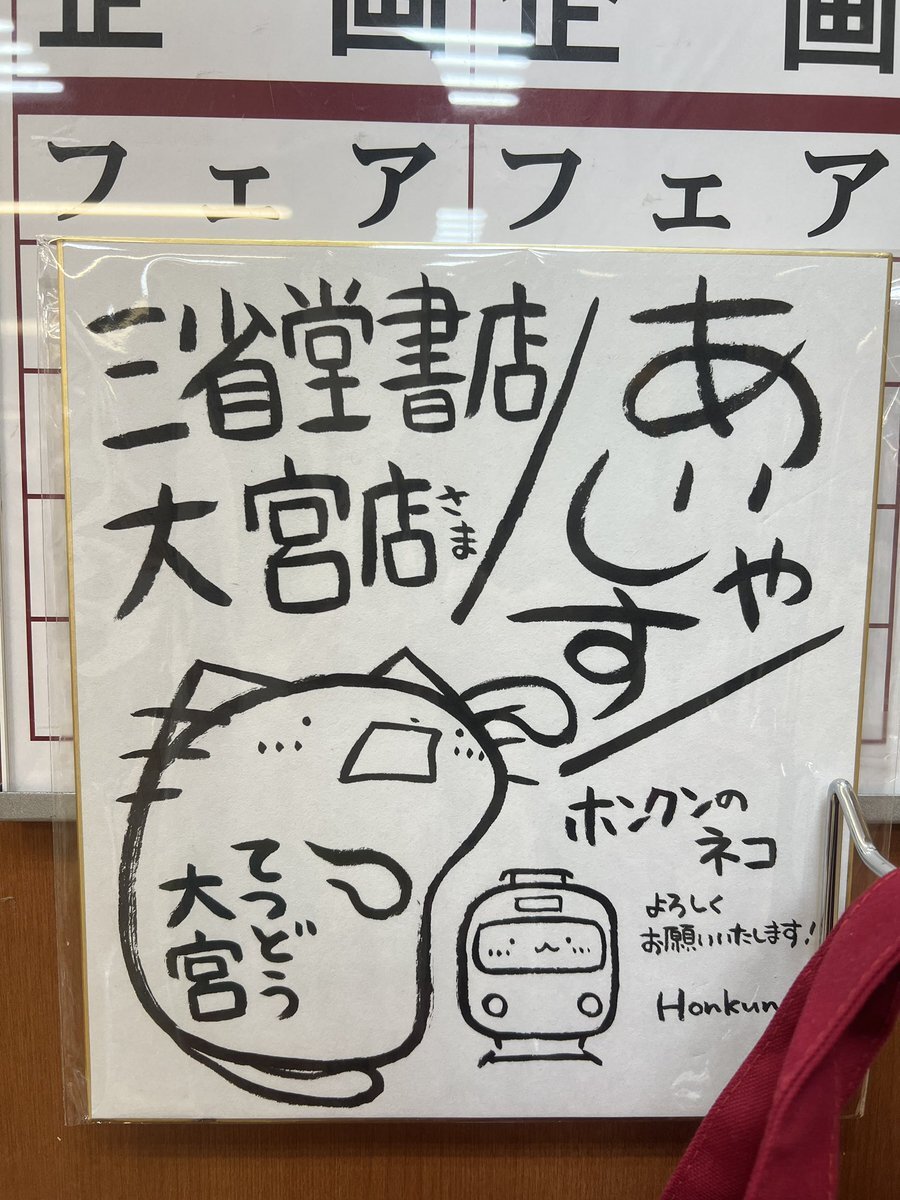 企画 企画
フェア フェア
三省堂書店
大宮店さま
あいしゃす
ホンクンの
ネコ
よろしく
お願いいたします!
Honkun
てつどう
大宮